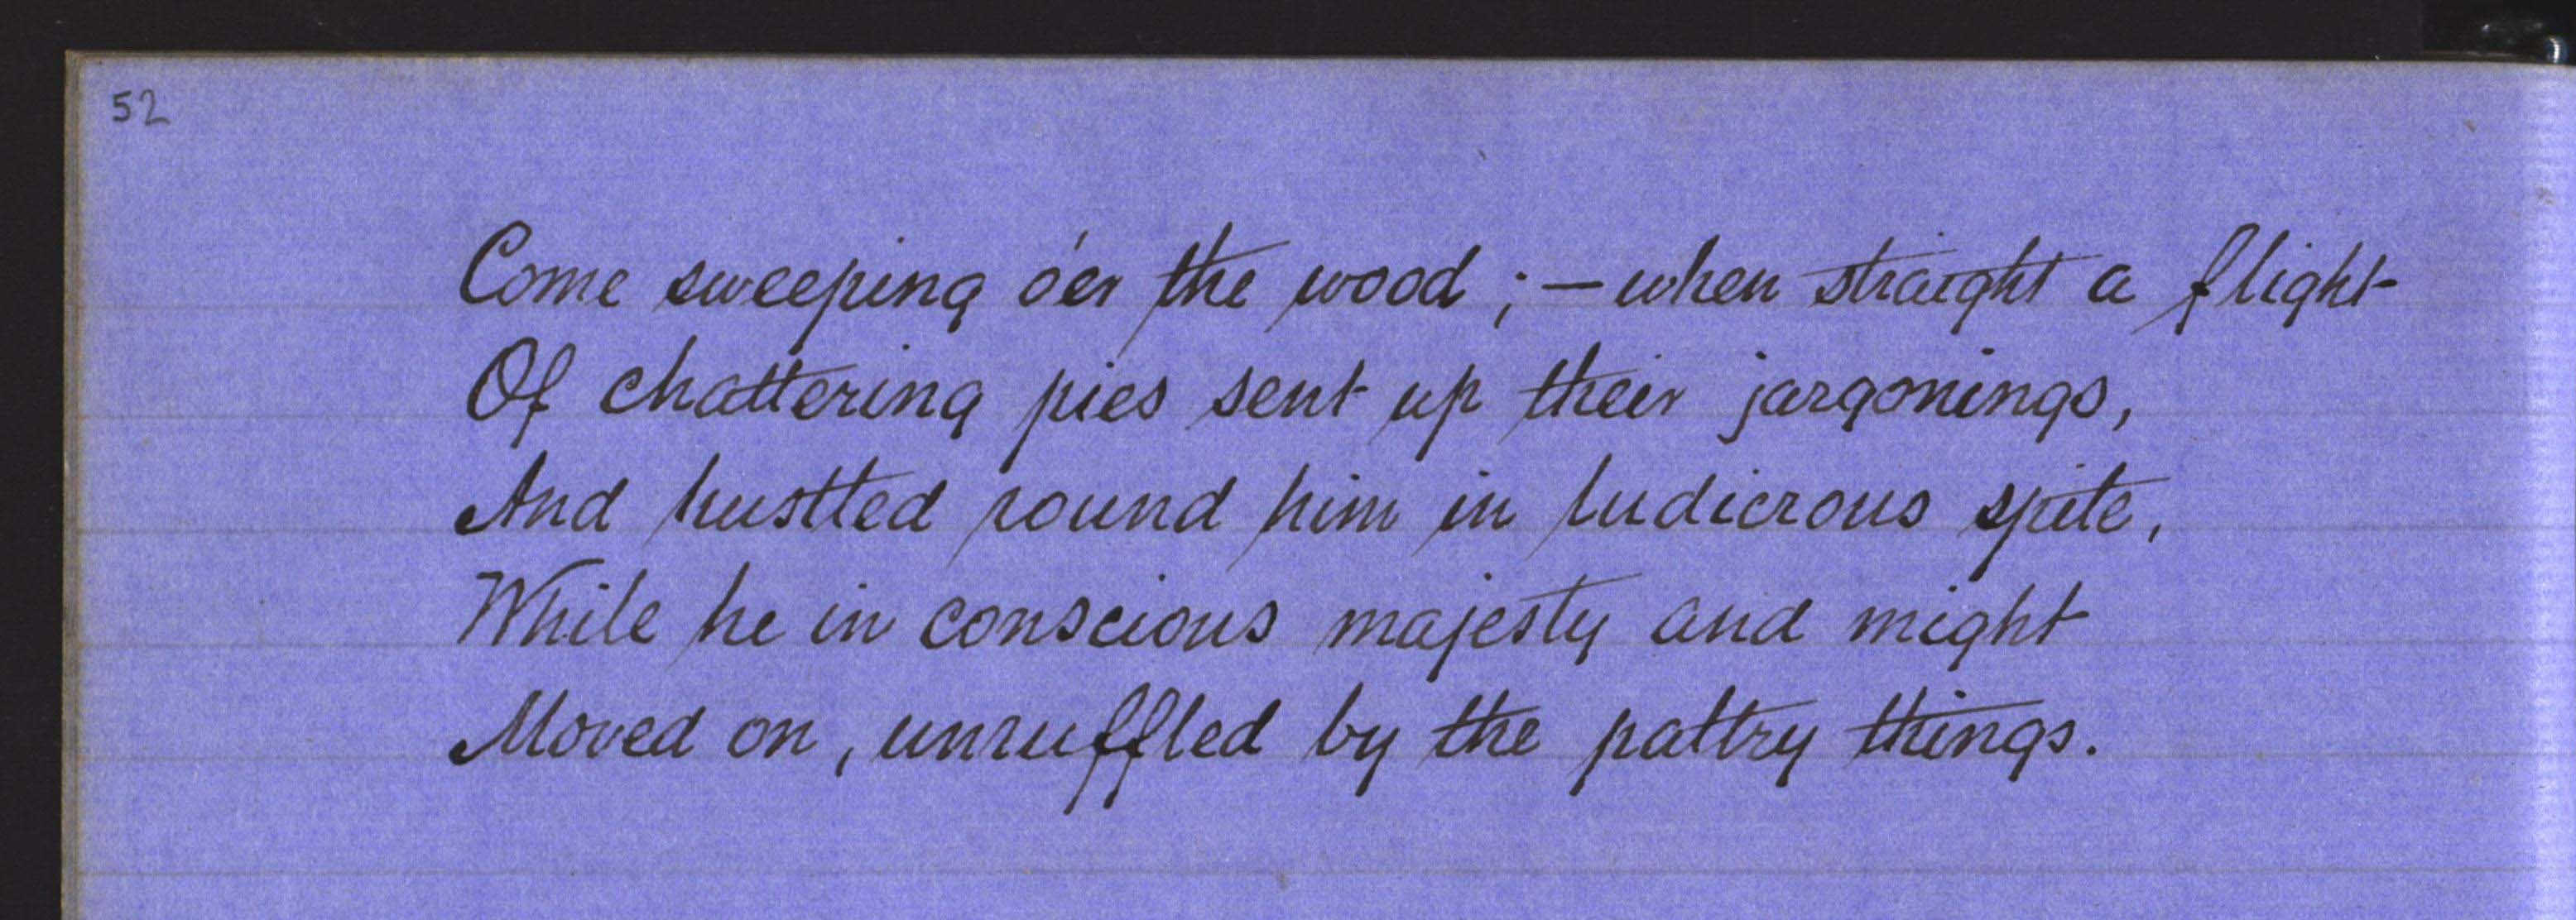 52
Come sweeping o'er the wood ; — when straight a flight
Of chattering pies sent up their jargonings,
And hustled round him in ludicrous spite,
While he in conscious majesty and might
Moved on, unruffled by the paltry things.